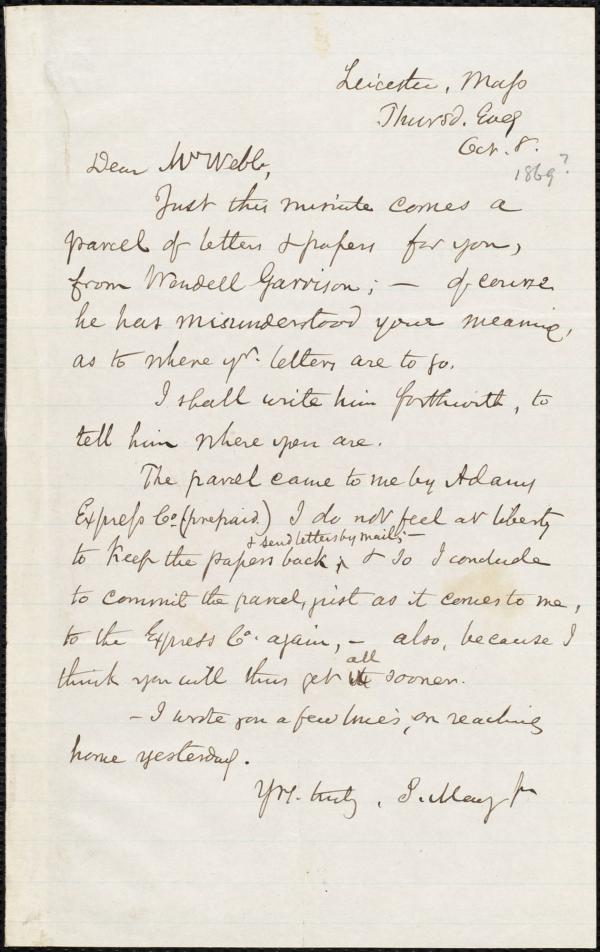 Leicester, Mass
Thursd. Eveg
Oct. 8.
1869?
Dear Mr Webb,
Just this minute comes a
parcel of letters & papers for you,
from Wendell Garrison; — of course
he has misunderstood your meaning,
as to where yr. letters are to go.
I shall write him forthwith, to
tell him where you are.
The parcel came to me by Adams
Express Co. (prepaid.) I do not feel at liberty
& send letters by mail; —
to keep the papers back, & so I conclude
to commit the parcel, just as it comes to me,
to the Express Co. again, — also, because I
all
think you will thus get it sooner.
— I wrote you a few lines, on reaching
home yesterday.
Yrs. truly, S. May Jr